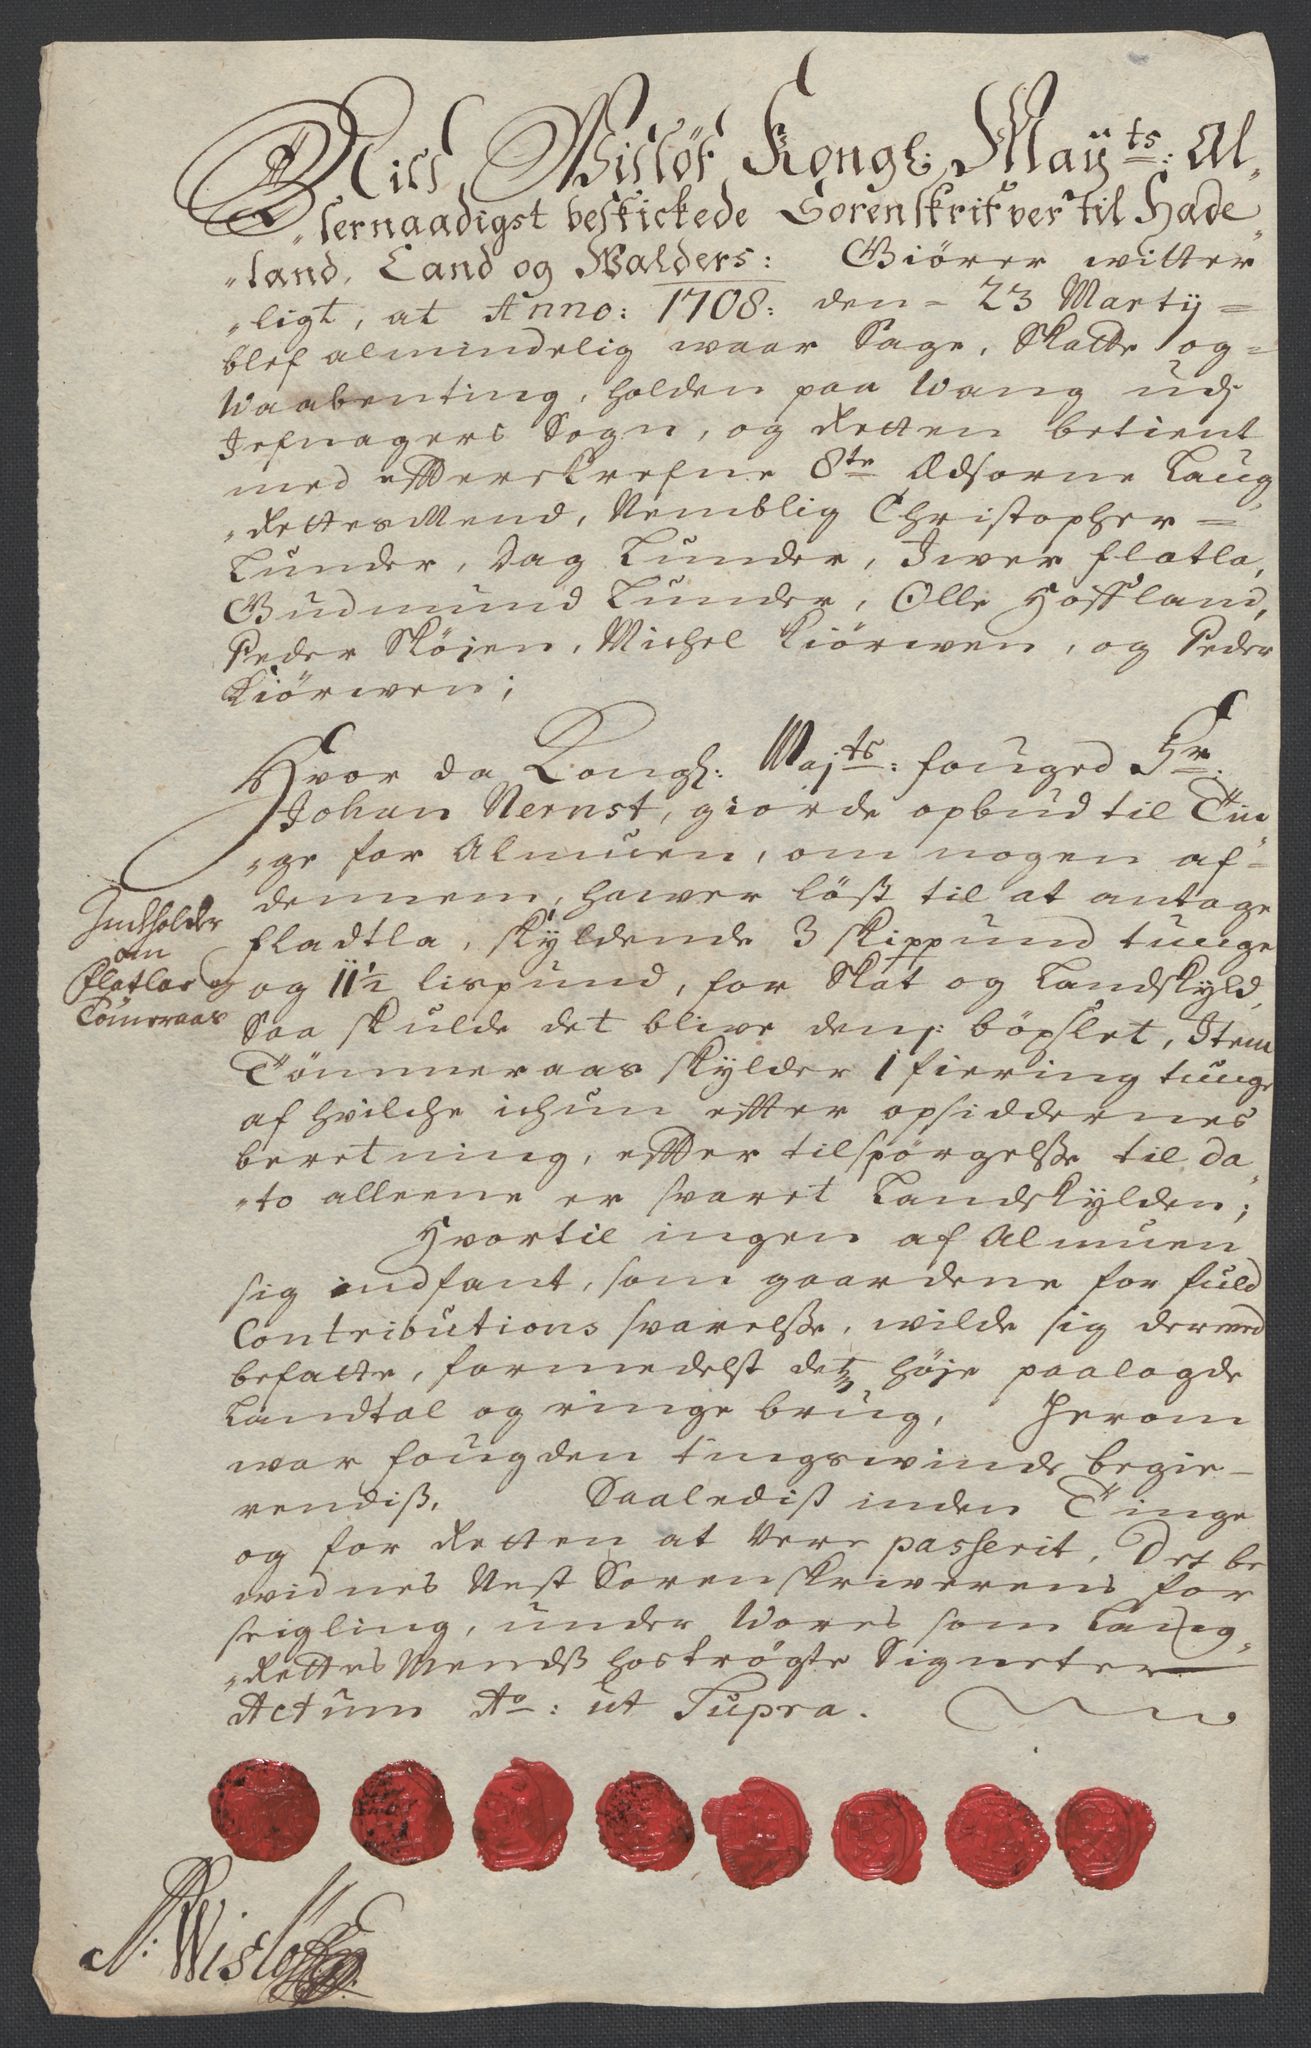 Nils Wislöf Kongl: Mayts: Al„
„lernaadigst beskickede Sorenskrifver til Hade„
„land, Land og Walders: Giörer witter„
„ligt, at Anno: 1708: den - 23 Marty =
blef almindelig waar Sage, Skatte og =
Waabenting, holden paa Wang udj
Jefnagers Sogn, og Retten betient
med effterskrefne 8te Edsorne Laug„
„RettesMend, Nemblig Christopher =
Lunder, Dag Lunder, Iwer flatla,
Gudmund Lunder, Olle Hoffland,
Peder Sköjen, Michel Kiörwen, og Peder
Kiörwen;
Hvor da Kongl: Majts: fouged Hr:
Johan Nernst, giorde opbud til Tin„
„ge for Almuen, om nogen af =
dennem, hawer löst til at antage
fladtla, skÿldende 3 skippund tunge
og 11½ lispund, for Skat og Landskyld,
Saa skulde det blive dem: böxlet, Item
Tömmeraas skylder 1 fiering tunge
af hvilche ichun effter opsiddernes
beretning, effter tilspörgelsse til da„
„to alleene er svaret Landskylden;
Hvortil ingen af Almuen
sig indfant, som gaardene for fuld
Contributions svarelsse, wilde sig dermed
befatte, formedelst det høje paalagde
Landtal og ringe brug, Herom
war fougden tingswinde begie-
rendiß. Saalediß inden Tinge
og for Retten at Vere passerit, Det be
widnes Nest Sorenskriwerens for
seigling, under Wores som Laug„
„RettesMendß hoströgte Signeter
Actum Ao: ut Supra.
Indholder
om
Flatlas og
Tömeraas
N: Wislöff